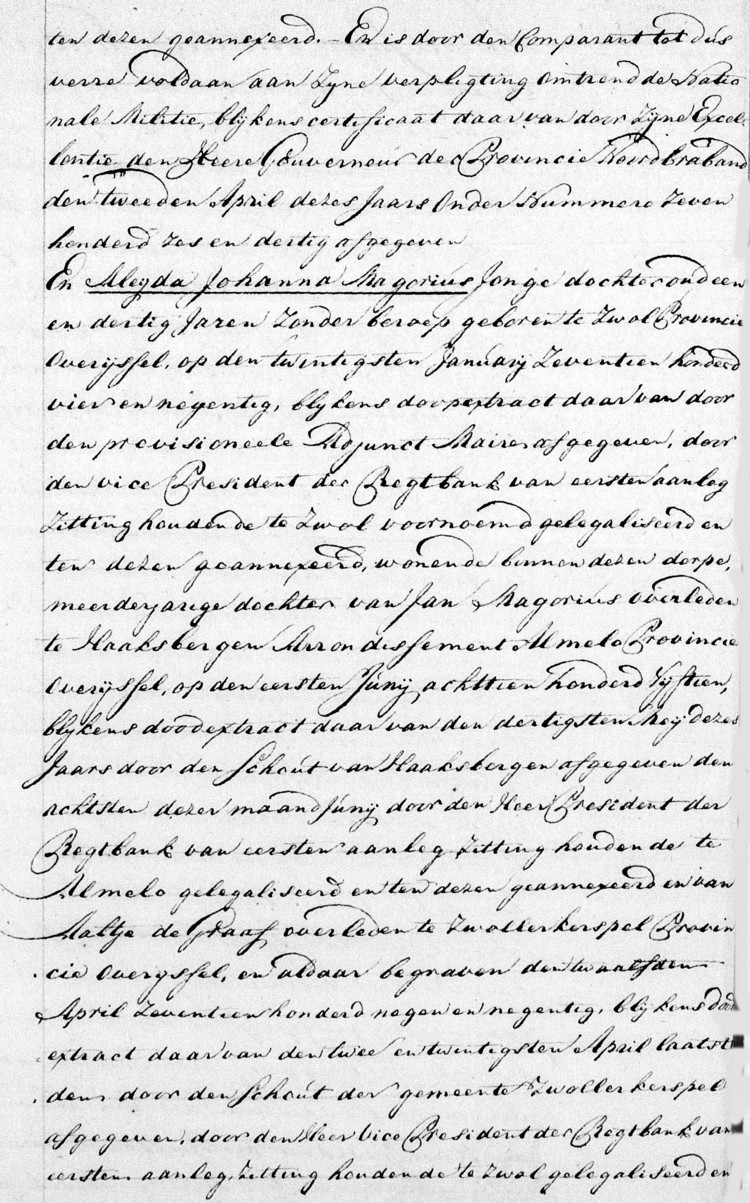 ten dezen geannexeerd. – En is door den Comparant tot dus
verre voldaan aan Zyne verpligting omtrend de Natio
nale Militie, blijkens certificaat daar van door Zijne Excel-
lentie den Heere Gouverneur der Provincie Noordbraband
den tweeden April dezes Jaars onder Nummero Zeven
honderd zes en dertig afgegeven
En Aleyda Johanna Magorius Jonge dochter oud een
en dertig Jaren Zonder beroep geboren te Zwol Provincie
Overijssel, op den twintigsten January Zeventien honderd
vier en negentig, blijkens doopextract daar van door
den provisioneele Adjunct Maire afgegeven, door
den vice President der Regtbank van eersten aanleg
Zitting houdende te Zwol voornoemd gelegaliseerd en
ten dezen geannexeerd, wonende binnen dezen dorpe,
meerderjarige dochter van Jan Magorius overleden
te Haaksbergen Arrondissement Almelo Provincie
Overijssel, op den eersten Junij achttien honderd Vijftien,
blijkens doodextract daar van den dertigsten Mey dezes
Jaars door den Schout van Haaksbergen afgegeven den
achtsten dezer maand Junij door den Heer President der
Regtbank van eersten aanleg Zitting houdende te
Almelo gelegaliseerd en ten dezen geannexeerd en van
Aaltje de Graaf overleden te Zwollerkerspel Provin
cie Overyssel, en aldaar begraven den twaalfden
April Zeventien honderd negen en negentig, blijkens dood
extract daar van den twee en twintigsten April laatstl
den door den Schout der gemeente Zwollerkerspel
afgegeven, door den Heer Vice President der Regtbank van
eersten aanleg, Zitting houdende te Zwol gelegaliseerd en